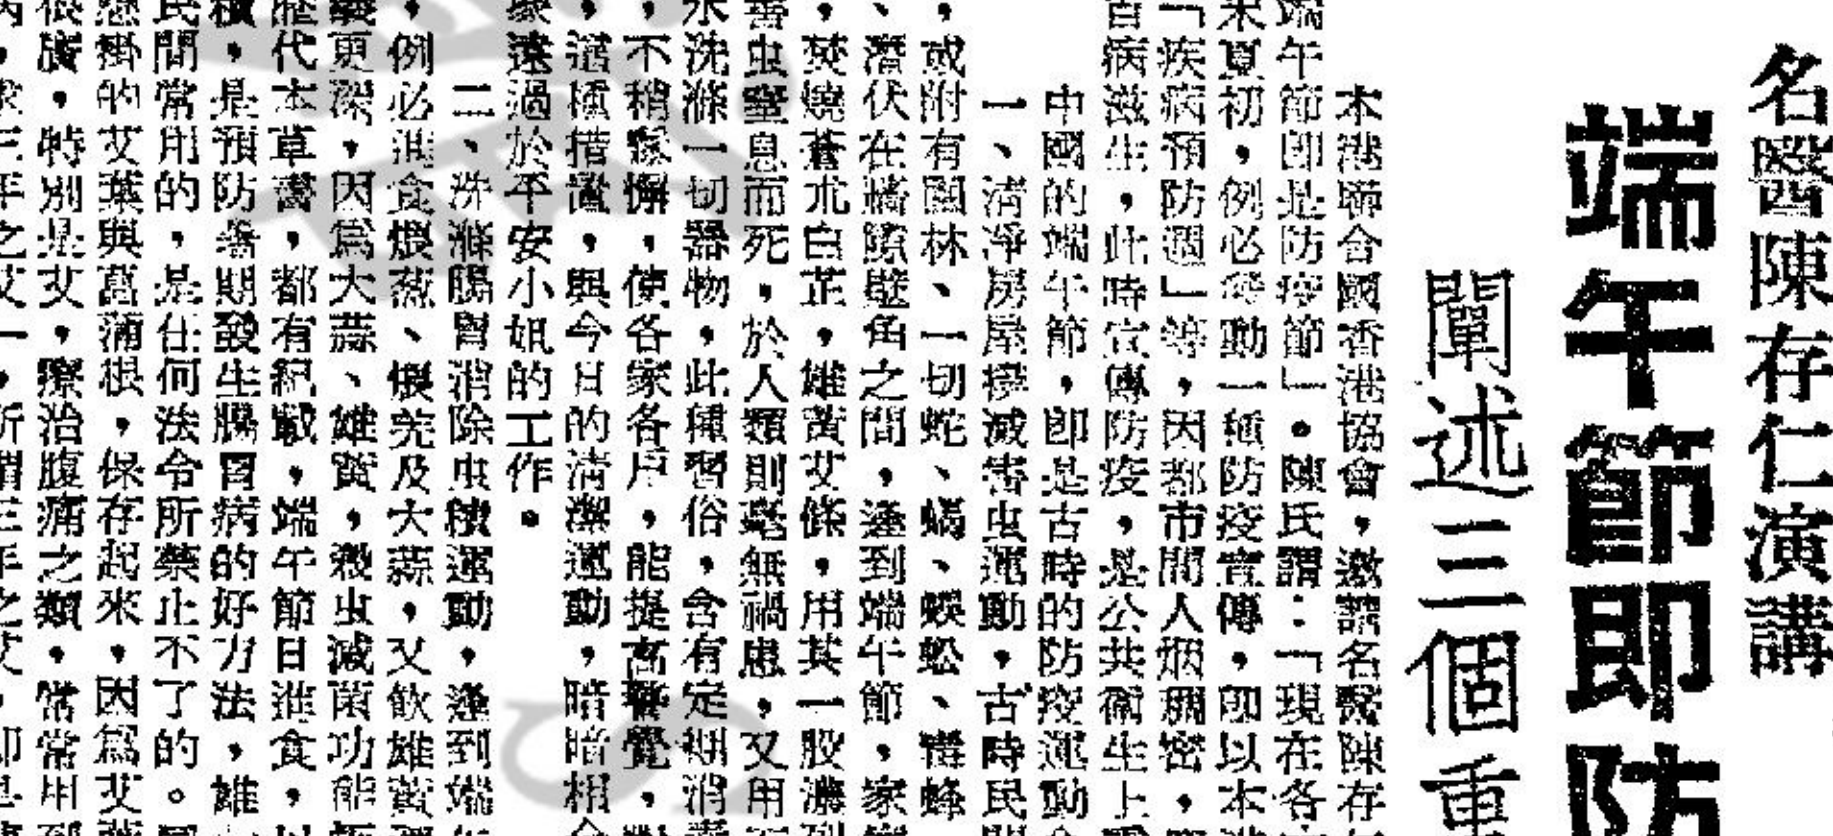 名醫陳存仁演講
端午節即防
闡述三個重
本港聯合國香港協會，邀請名醫陳存
端午節即是防疫節」。陳氏謂：「現在各
末夏初，例必發動一種防疫宣傳，即以本港
「疾病預防週」等，因都市間人烟稠密，
百病滋生，此時宣傳防疫，是公共衞生上
中國的端午節，即是古時的防疫運動
一、清淨房屋撲滅害虫運動，古時民
，或附有園林、一切蛇、蝎、蜈蚣、毒蜂
、潛伏在牆隙壁角之間，逢到端午節，家
，焚燒蒼朮白芷，雄黃艾條，用其一股濃烈
害虫窒息而死，於人類則毫無禍患，又用
水洗滌一切器物，此種習俗，含有定期消毒
，不稍鬆懈，使各家各戶，能提高警覺，對
，這種措置，與今日的清潔運動，暗暗相合
遠過於平安小姐的工作。
二、洗滌腸胃消除虫積運動，逢到端午
，例必進食煨蒸、煨羌及大蒜，又飲雄黃
義更深，因為大蒜、雄黃，殺虫滅菌功能
歷代本草書，都有紀載，端午節日進食，以
積，是預防暑期發生腸胃病的好方法，雄
民間常用的，是任何法令所禁止不了的。
懸掛的艾葉與菖蒲根，保存起來，因為艾葉
很廣，特別是艾，療治腹痛之類，常常用到
病，求三年之艾一，所謂三年之艾，即是